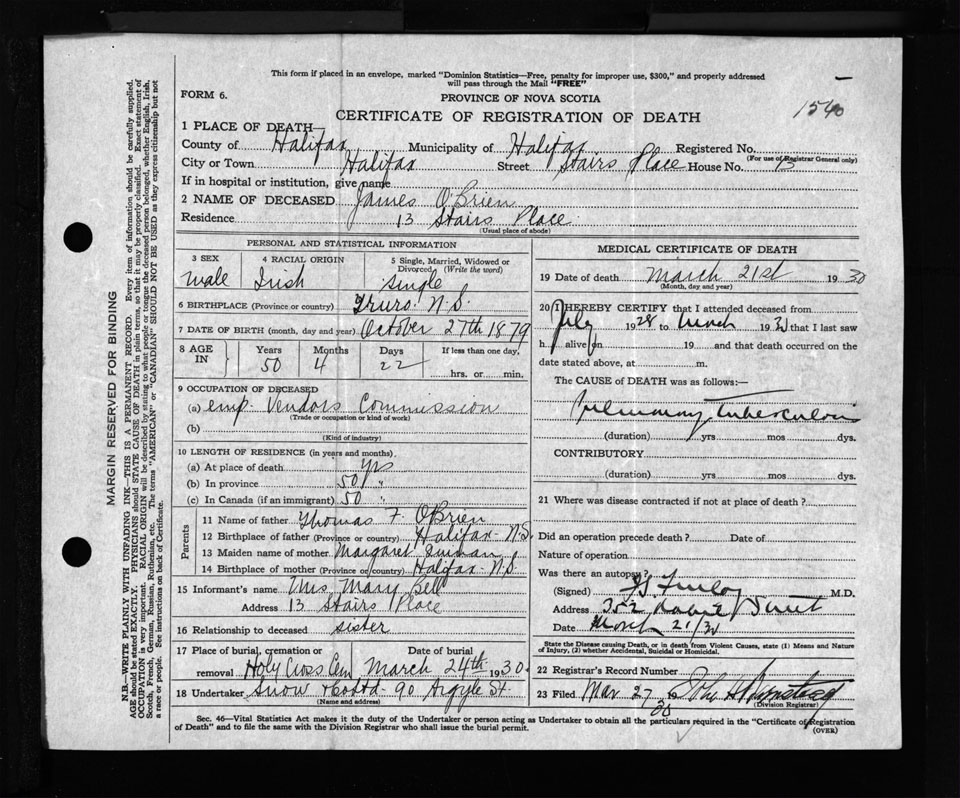 This form if placed in an envelope, marked "Dominion Statistics—Free, penalty for improper use, $300," and properly addressed
will pass through the Mail "FREE"
FORM 6.
PROVINCE OF NOVA SCOTIA
1540
CERTIFICATE OF REGISTRATION OF DEATH
1 PLACE OF DEATH—
County of Halifax Municipality of Halifax Registered No.
(For use of Registrar General only)
City or Town Halifax Street Stairs Place House No. 13
If in hospital or institution, give name
2 NAME OF DECEASED James O'Brien
Residence 13 Stairs Place
(Usual place of abode)
PERSONAL AND STATISTICAL INFORMATION
3 SEX 4 RACIAL ORIGIN 5 Single, Married, Widowed or
Divorced (Write the word)
Male Irish Single
6 BIRTHPLACE (Province or country) Truro N.S.
7 DATE OF BIRTH (month, day and year) October 27th 1879
8 AGE IN Years Months Days If less than one day,
50 4 22 hrs. or min.
9 OCCUPATION OF DECEASED
(a) emp. Vendors Commission
(Trade or occupation or kind of work)
(b)
(Kind of industry)
10 LENGTH OF RESIDENCE (in years and months)
(a) At place of death yrs
(b) In province 50 "
(c) In Canada (if an immigrant) 50 "
Parents
11 Name of father Thomas F O'Brien
12 Birthplace of father (Province or country) Halifax N.S.
13 Maiden name of mother Margaret
14 Birthplace of mother (Province or country) Halifax N.S.
15 Informant's name Mrs Mary Bell
Address 13 Stairs Place
16 Relationship to deceased sister
17 Place of burial, cremation or Date of burial
removal Holy Cross Cem March 24th 1930
18 Undertaker Snow 90 Argyle St.
(Name and address)
MEDICAL CERTIFICATE OF DEATH
19 Date of death March 21st 1930
(Month, day and year)
20 I HEREBY CERTIFY that I attended deceased from
July 1928 to March 1930 that I last saw
h alive on 19 and that death occurred on the
date stated above, at m.
The CAUSE OF DEATH was as follows:—
Pulmonary Tuberculosis
(duration) yrs mos dys.
CONTRIBUTORY
(duration) yrs mos dys.
21 Where was disease contracted if not at place of death?
Did an operation precede death? Date of
Nature of operation
Was there an autopsy?
(Signed) M.D.
Address 352 Street
Date March 21/30
State the Disease Causing Death, or in death from Violent Causes, state (1) Means and Nature
of Injury, (2) whether Accidental, Suicidal or Homicidal.
22 Registrar's Record Number
23 Filed Mar 27 1930
(Division Registrar)
Sec. 46—Vital Statistics Act makes it the duty of the Undertaker or person acting as Undertaker to obtain all the particulars required in the "Certificate of Registration
of Death" and to file the same with the Division Registrar who shall issue the burial permit.
(OVER)
MARGIN RESERVED FOR BINDING
N.B.—WRITE PLAINLY WITH UNFADING INK—THIS IS A PERMANENT RECORD. Every item of information should be carefully supplied.
AGE should be stated EXACTLY. PHYSICIANS should STATE CAUSE OF DEATH in plain terms, so that it may be properly classified. Exact statement of
OCCUPATION is very important. RACIAL ORIGIN will be described by stating to what people or tongue the deceased person belonged, whether English, Irish,
Scotch, French, German, Russian, Ruthenian, etc. The terms "AMERICAN" or "CANADIAN" SHOULD NOT BE USED as they express citizenship but not
a race or people. See instructions on back of Certificate.